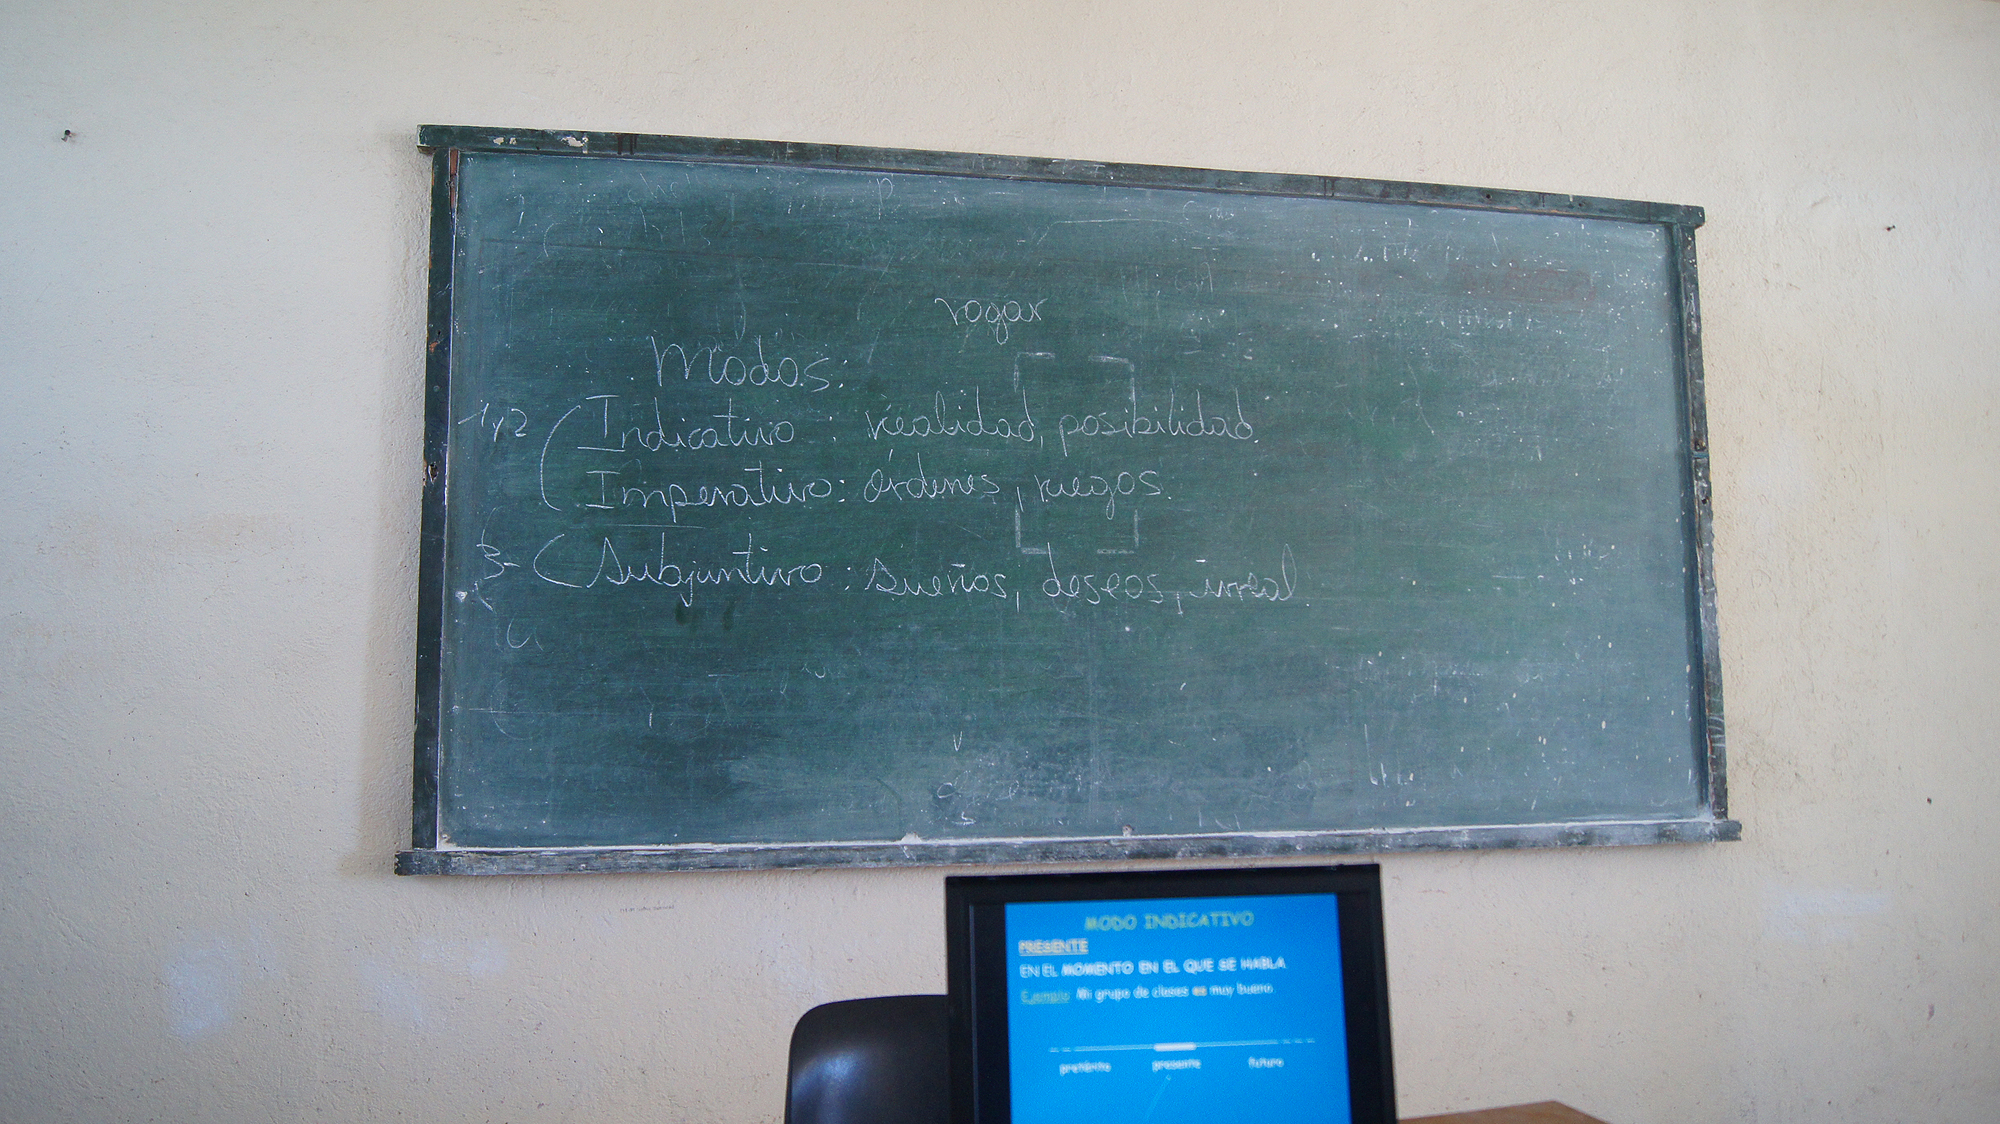 rogar
Modos:
1y2 ( Indicativo : realidad, posibilidad.
Imperativo: órdenes, ruegos.
3- ( Subjuntivo : sueños, deseos, irreal.
MODO INDICATIVO
PRESENTE
EN EL MOMENTO EN EL QUE SE HABLA
Ejemplo Mi grupo de clases es muy bueno
pretérito presente futuro